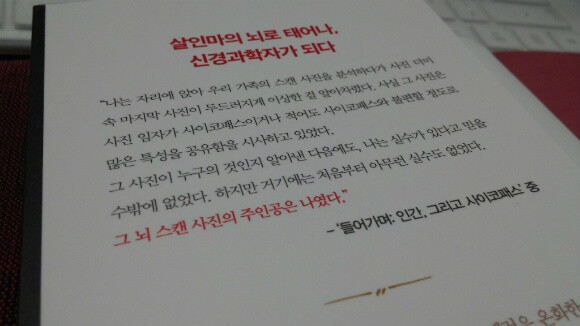 살인마의 뇌로 태어나,
신경과학자가 되다
“나는 자리에 앉아 우리 가족의 스캔 사진을 분석하다가 사진 더미
속 마지막 사진이 두드러지게 이상한 걸 알아차렸다. 사실 그 사진은
사진 임자가 사이코패스이거나 적어도 사이코패스와 불편할 정도로
많은 특성을 공유함을 시사하고 있었다.
그 사진이 누구의 것인지 알아낸 다음에도, 나는 실수가 있다고 믿을
수밖에 없었다. 하지만 거기에는 처음부터 아무런 실수도 없었다.
그 뇌 스캔 사진의 주인공은 나였다.”
– ‘들어가며: 인간, 그리고 사이코패스’ 중
온화한